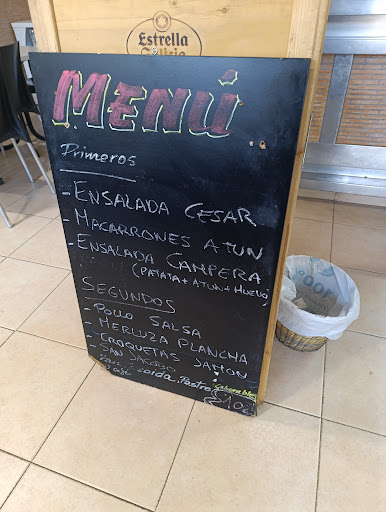 Estrella
Galicia
MENÚ
Primeros
- ENSALADA CESAR
- MACARRONES ATUN
- ENSALADA CAMPERA
(PATATA + ATUN + HUEVO)
SEGUNDOS
- POLLO SALSA
- MERLUZA PLANCHA
- CROQUETAS JAMON
- SAN JACOBO
Pan, bebida, Postre